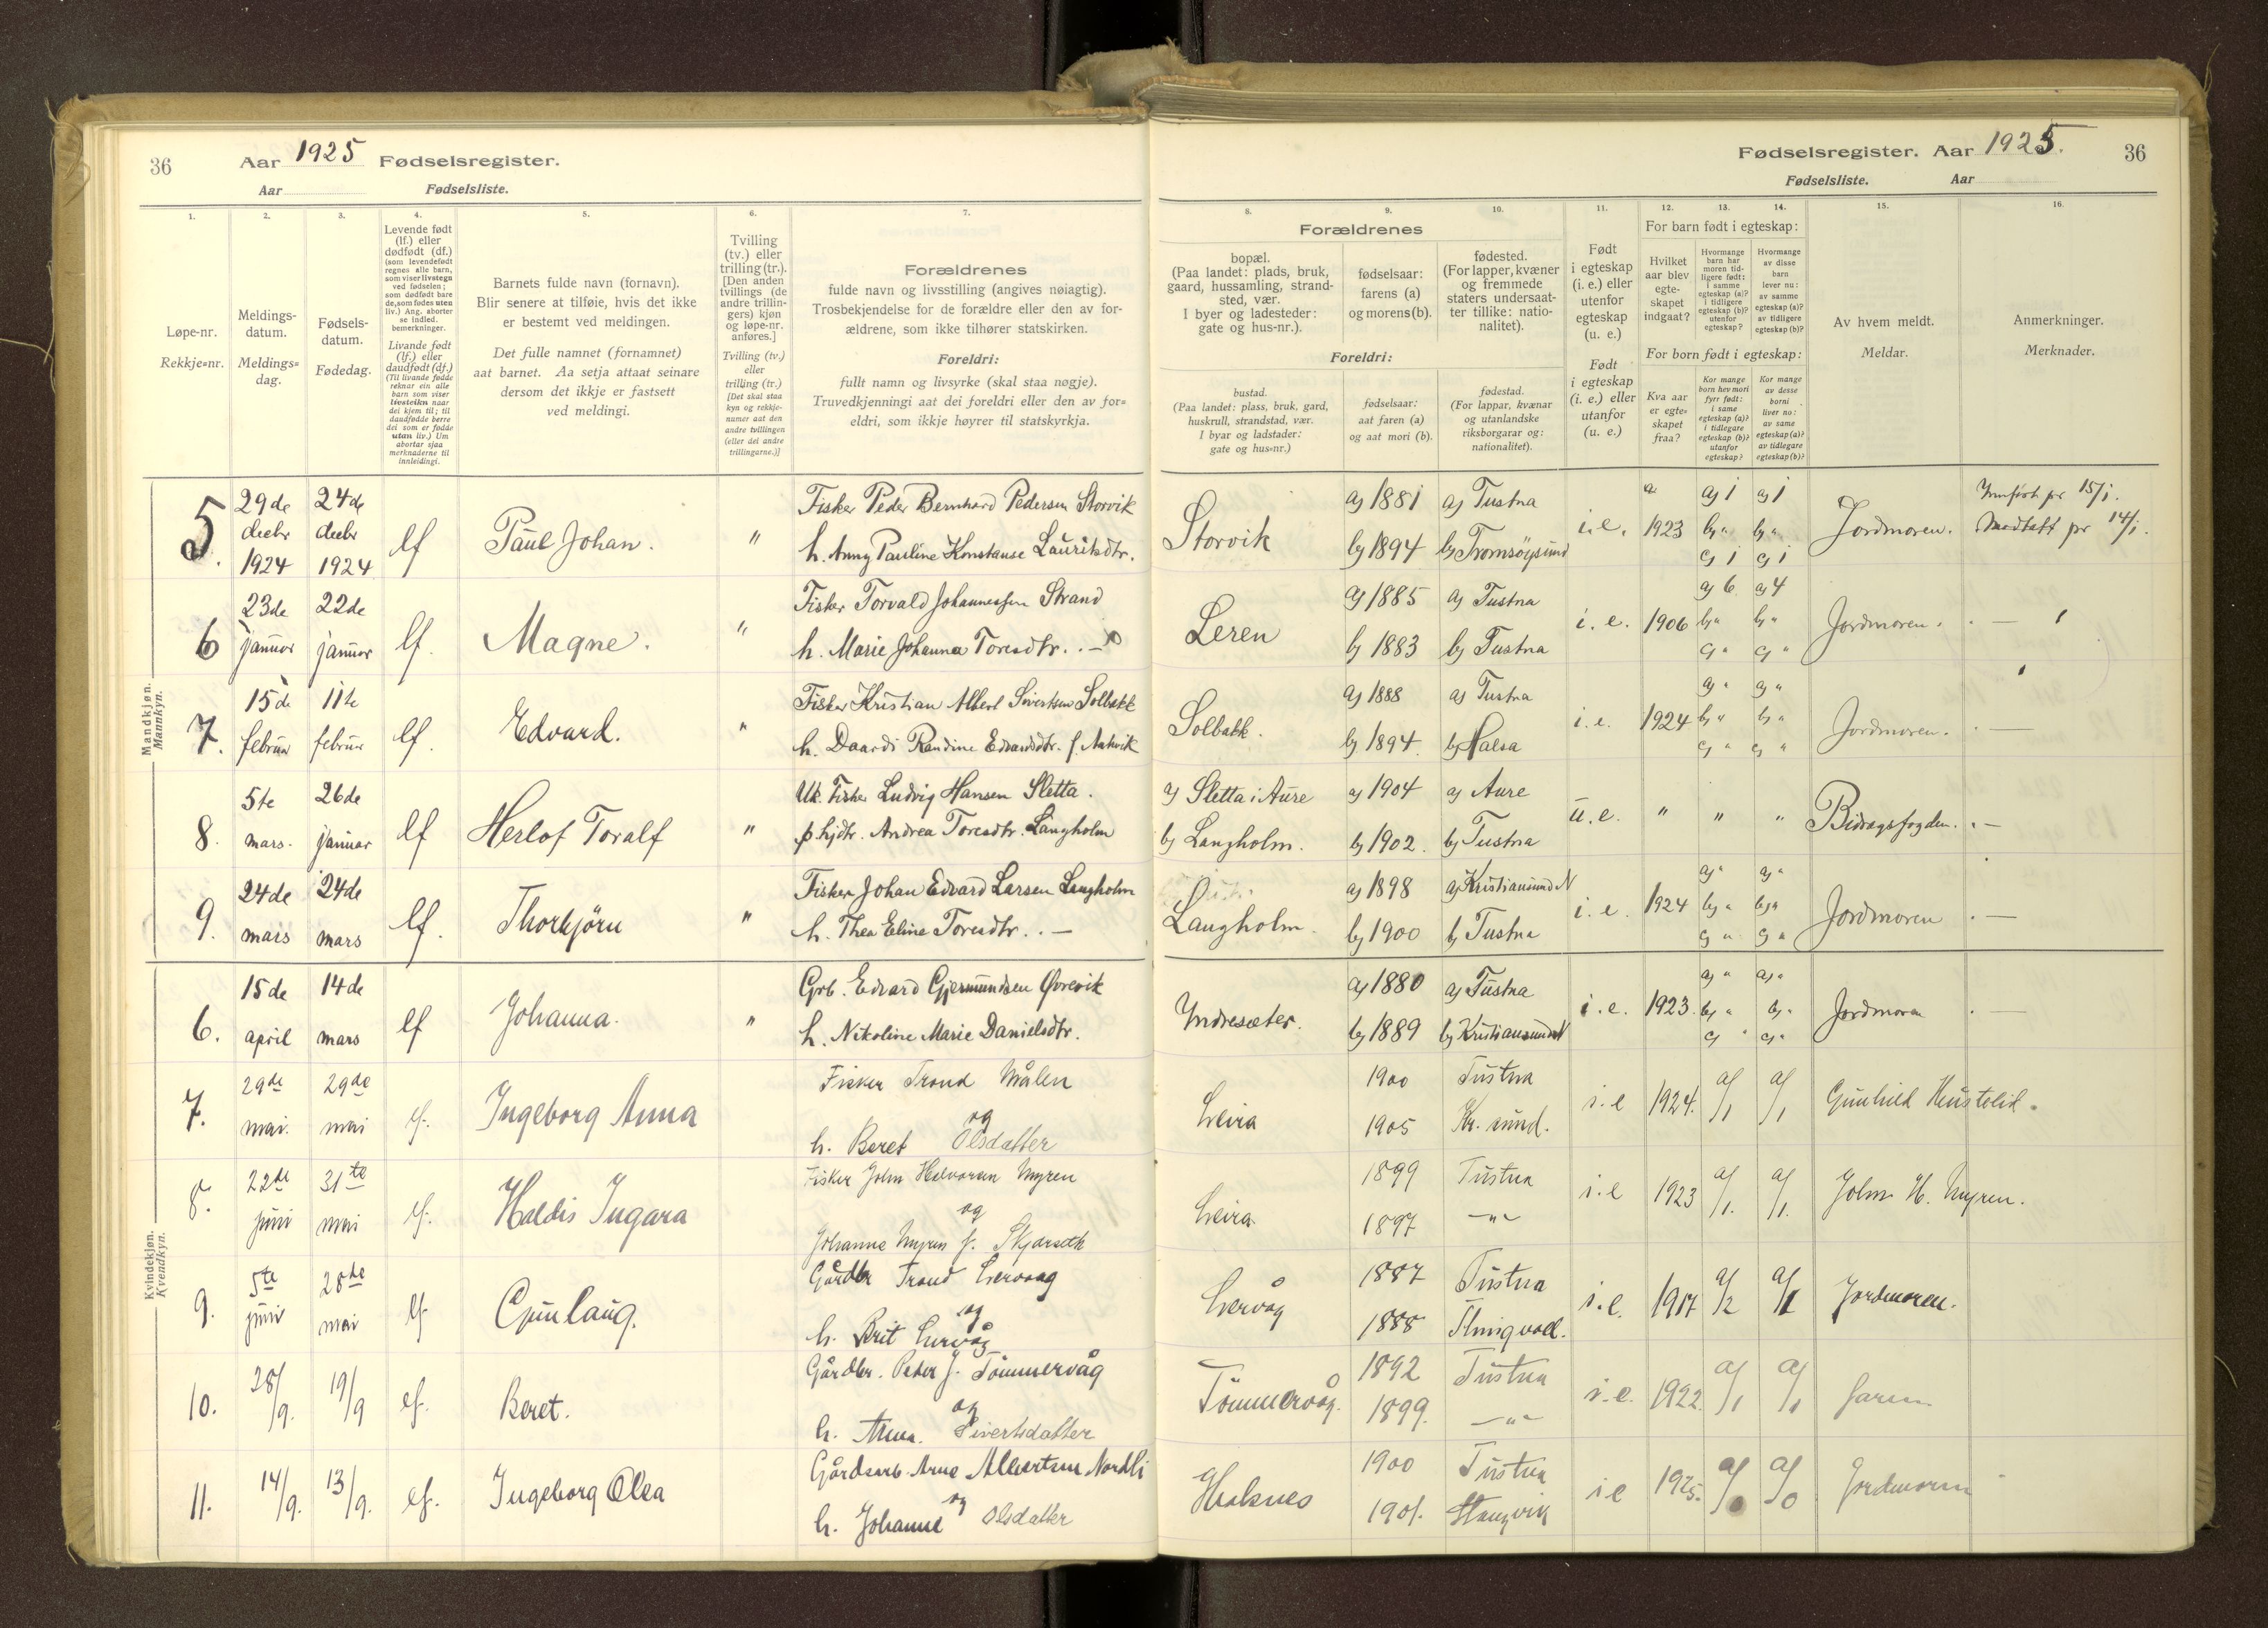 36 Aar 1925 Fødselsregister.
Aar Fødselsliste.
Fødselsregister. Aar 1925. 36
Fødselsliste. Aar
1. 2. 3. 4. 5. 6. 7.
Løpe-nr.
Rekkje=nr.
Meldings-
datum.
Meldings=
dag.
Fødsels-
datum.
Fødedag.
Levende født
(lf.) eller
dødfødt (df.)
(som levendefødt
regnes alle barn,
som viser livstegn
ved fødselen;
som dødfødt bare
de, som fødes uten
liv.) Ang. aborter
se indled.
bemerkninger.
Livande født
(lf.) eller
daudfødt (df.)
(Til livande fødde
reknar ein alle
barn som viser
livsteikn naar
dei kjem til; til
daudfødde berre
dei som er fødde
utan liv.) Um
abortar sjaa
merknaderne til
innleidingi.
Barnets fulde navn (fornavn).
Blir senere at tilføie, hvis det ikke
er bestemt ved meldingen.
Det fulle namnet (fornamnet)
aat barnet. Aa setja attaat seinare
dersom det ikkje er fastsett
ved meldingi.
Tvilling
(tv.) eller
trilling (tr.).
[Den anden
tvillings (de
andre trillin-
gers) kjøn
og løpe-nr.
anføres.]
Tvilling (tv.)
eller
trilling (tr.)
[Det skal staa
kyn og rekkje-
numer aat den
andre tvillingen
(eller dei andre
trillingarne.)]
Forældrenes
fulde navn og livsstilling (angives nøiagtig).
Trosbekjendelse for de forældre eller den av for-
ældrene, som ikke tilhører statskirken.
Foreldri:
fullt namn og livsyrke (skal staa nøgje).
Truvedkjenningi aat dei foreldri eller den av for=
eldri, som ikkje høyrer til statskyrkja.
8. 9. 10. 11. 12. 13. 14. 15. 16.
Forældrenes
bopæl.
(Paa landet: plads, bruk,
gaard, hussamling, strand-
sted, vær.
I byer og ladesteder:
gate og hus-nr.).
fødselsaar:
farens (a)
og morens (b).
fødested.
(For lapper, kvæner
og fremmede
staters undersaat-
ter tillike: natio-
nalitet).
Foreldri:
bustad.
(Paa landet: plass, bruk, gard,
huskrull, strandstad, vær.
I byar og ladstader:
gate og hus=nr.)
fødselsaar:
aat faren (a)
og aat mori (b).
fødestad.
(For lappar, kvænar
og utanlandske
riksborgarar og:
nationalitet).
Født
i egteskap
(i. e.) eller
utenfor
egteskap
(u. e.)
Født
i egteskap
(i. e.) eller
utanfor
(u. e.)
For barn født i egteskap:
Hvilket
aar blev
egte-
skapet
indgaat?
Hvormange
barn har
moren tid-
ligere født:
i samme
egteskap (a)?
i tidligere
egteskap (b)?
utenfor
egteskap?
Hvormange
av disse
barn
lever nu:
av samme
egteskap (a)?
av tidligere
egteskap (b)?
For born født i egteskap:
Kva aar
er egte=
skapet
fraa?
Kor mange
born hev mori
fyrr født:
i same
egteskap (a)?
i tidlegare
egteskap (b)?
utanfor
egteskap?
Kor mange
av desse
borni
liver no:
av same
egteskap (a)?
av tidlegare
egteskap (b)?
Av hvem meldt.
Meldar.
Anmerkninger.
Merknader.
Mandkjøn.
Mannkyn.
5. 29de decbr 1924 24de decbr 1924 lf Paul Johan. " Fisker Peder Bernhard Pedersen Storvik
h. Anny Pauline Konstanse Lauritsdtr.
Storvik a) 1881 b) 1894 a) Tustna b) Tromsøysund i.e. 1923 a) 1 b) " c) 1 a) 1 b) " c) 1 Jordmoren. Innført pr 15/1.
Modtatt pr 14/1.
6 23de januar 22de januar lf. Magne. " Fisker Torvald Johannessen Strand
h. Marie Johanna Toresdtr.
Leren a) 1885 b) 1883 a) Tustna b) Tustna i.e. 1906 a) 6 b) " c) " a) 4 b) " c) " Jordmoren.
7. 15de februar 11te februar lf. Edvard. " Fisker Kristian Albert Sivertsen Solbakk
h. Daardi Randine Edvardsdtr. f. Aakvik
Solbakk. a) 1888 b) 1894 a) Tustna b) Halsa i.e. 1924 a) " b) " c) " a) " b) " c) " Jordmoren.
8. 5te mars. 26de januar lf Herlof Toralf " Uk. Fisker Ludvig Hansen Sletta.
p. hjdtr. Andrea Toresdtr. Langholm
a) Sletta i Aure b) Langholm. a) 1904 b) 1902. a) Aure b) Tustna u.e. " " " Bidragsfogden.
9. 24de mars 24de mars lf. Thorbjörn " Fisker Johan Edvard Larsen Langholm
h. Thea Eline Toresdtr.
Langholm. a) 1898 b) 1900 a) Kristiansund N b) Tustna i.e. 1924 a) " b) " c) " a) " b) " c) " Jordmoren
Kvindekjøn.
Kvendkyn.
6. 15de april 14de mars lf Johanna. " Grb. Edvard Gjermundsen Øvrevik
h. Nikoline Marie Danielsdtr.
Yndresæter. a) 1880 b) 1889 a) Tustna b) Kristiansund N i.e. 1923. a) " b) " c) " a) " b) " c) " Jordmoren
7. 29de mai. 29de mai lf. Ingeborg Anna Fisker Trond Målen
og
h. Beret Olsdatter
Leira 1900 1905 Tustna Kr. sund. i.e 1924. a/1 a/1 Gunhild
8. 22de juni 31te mai lf. Haldis Ingara Fisker John Halvorsen Myren
og
Johanne Myren f. Skjarseth
Leira 1899 1897 Tustna —"— i.e 1923 a/1. a/1. John H. Myren.
9. 5te juni 28de mai lf Gunlaug. Gårdbr Trond Lervaag
og
h. Brit Lervåg
Lervåg 1887 1888 Tustna i.e. 1917 a/2 a/1 Jordmoren.
10. 28/9. 19/9 lf. Beret. Gårdbr. Peter J. Tömmervåg
og
h. Anna. Sivertsdatter
Tömmervåg. 1892 1899. Tustna —"— i.e. 1922. a/1 a/1 faren
11. 14/9. 13/9. lf. Ingeborg Olea Gårdsarb. Arne Albertsen Nordli
og
h. Johanne Olsdatter
1900 1901. Tustna Stangvik i.e 1925. a/0 a/0 Jordmoren